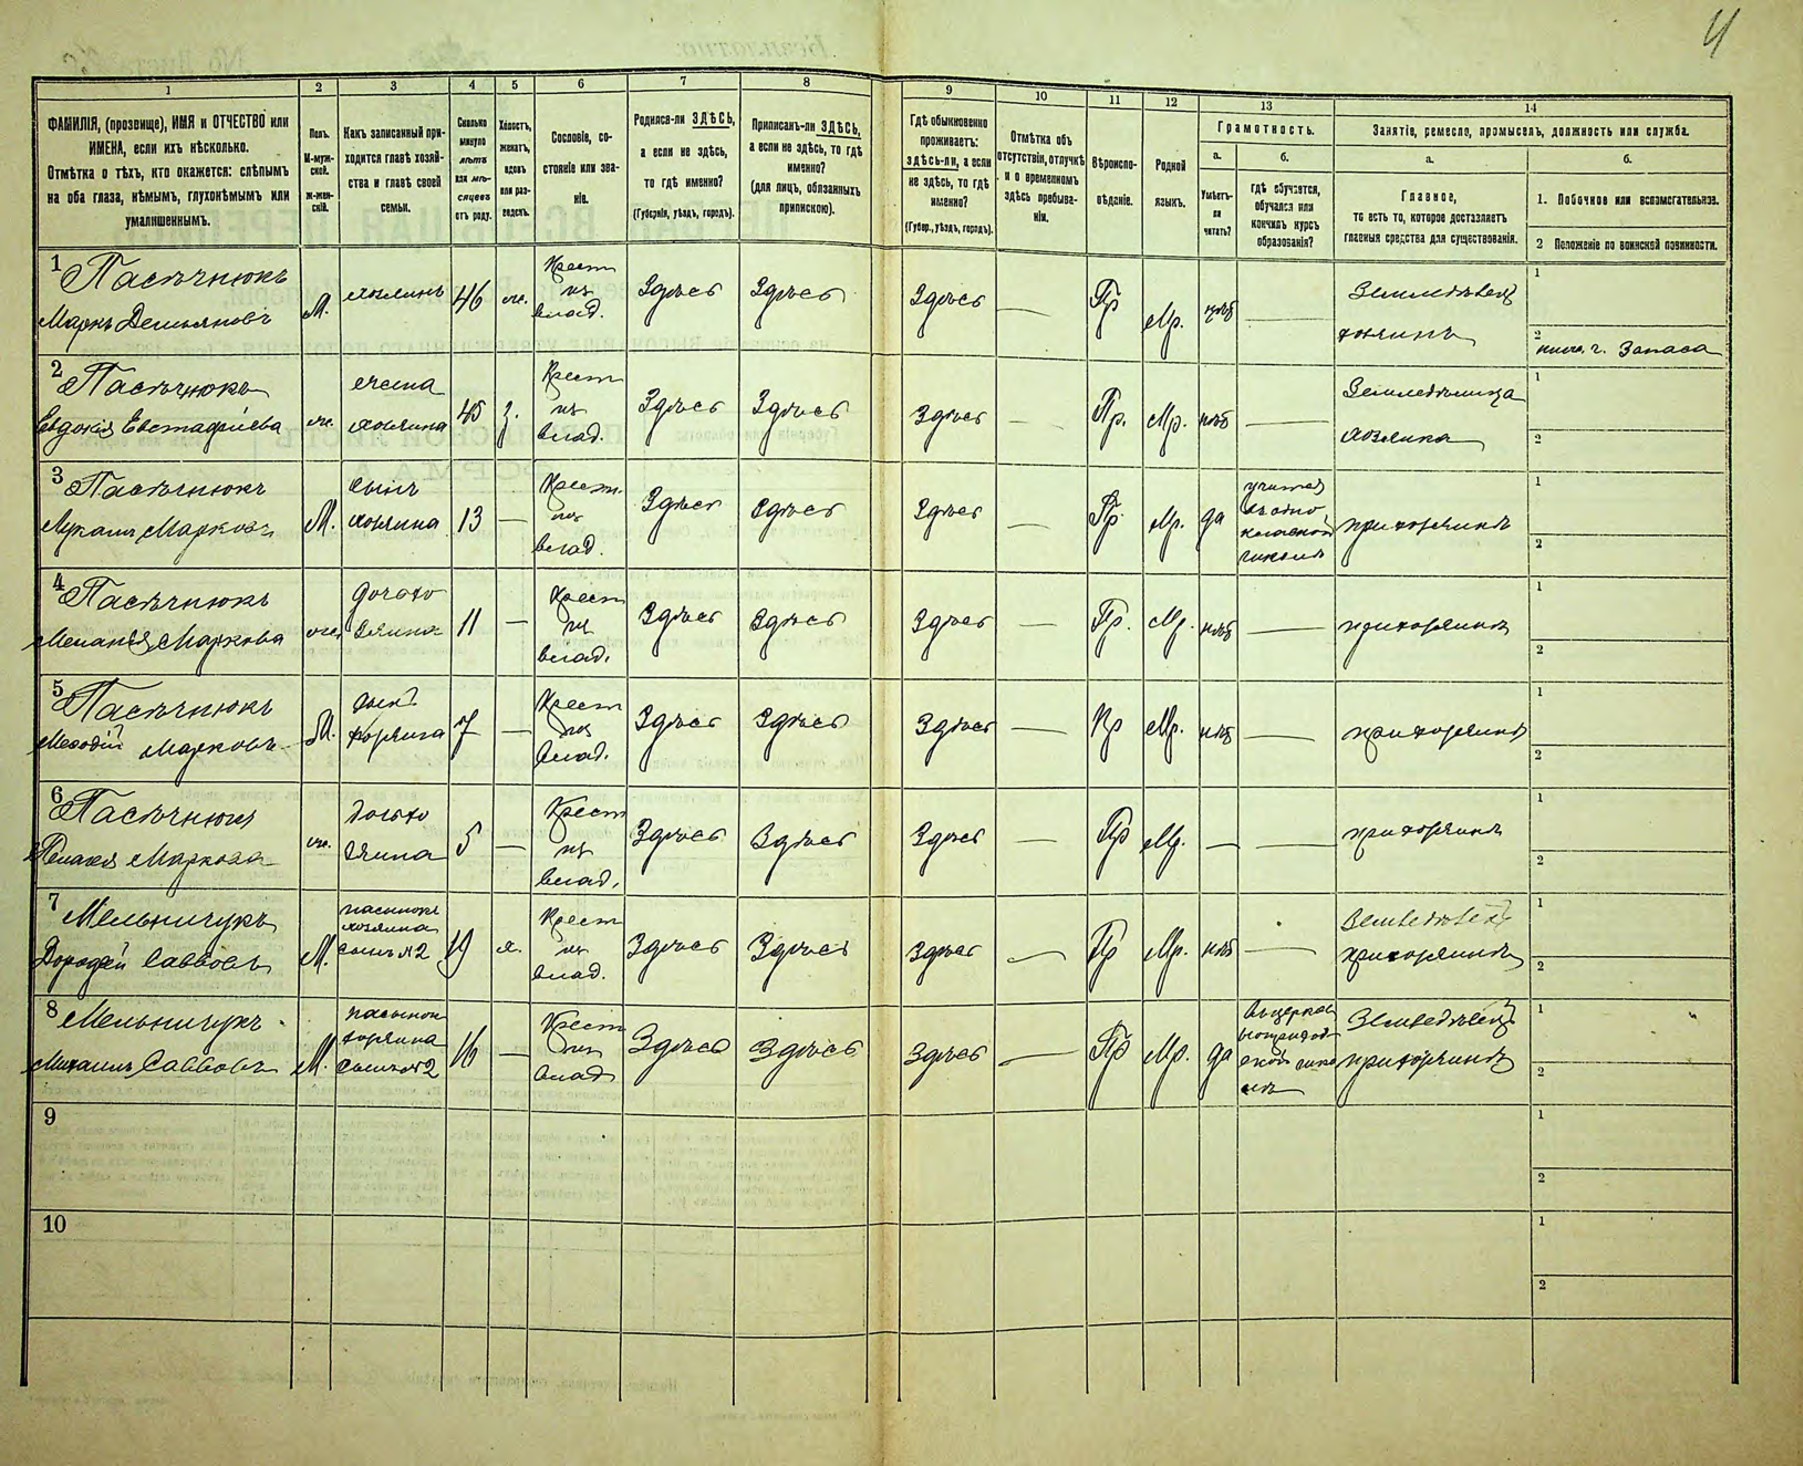 4
1
2
3
4
5
6
7
8
9
10
11
12
13
14
ФАМИЛІЯ, (прозвище), ИМЯ и ОТЧЕСТВО или
ИМЕНА, если ихъ нѣсколько.
Отмѣтка о тѣхъ, кто окажется: слѣпымъ
на оба глаза, нѣмымъ, глухонѣмымъ или
умалишеннымъ.
Полъ.
М-муж-
ской.
Ж-жен-
скій.
Какъ записанный при-
ходится главѣ хозяй-
ства и главѣ своей
семьи.
Сколько
минуло
лѣтъ
или мѣ-
сяцевъ
отъ роду.
Холостъ,
женатъ,
вдовъ
или раз-
веденъ.
Сословіе, со-
стояніе или зва-
ніе.
Родился-ли ЗДѢСЬ,
а если не здѣсь,
то гдѣ именно?
(Губернія, уѣздъ, городъ).
Приписанъ-ли ЗДѢСЬ,
а если не здѣсь, то гдѣ
именно?
(для лицъ, обязанныхъ
припиской).
Гдѣ обыкновенно
проживаетъ:
здѣсь-ли, а если
не здѣсь, то гдѣ
именно?
(Губер., уѣздъ, городъ).
Отмѣтка объ
отсутствіи, отлучкѣ
и о временномъ
здѣсь пребыва-
ніи.
Вѣроиспо-
вѣданіе.
Родной
языкъ.
Грамотность.
а.
Умѣетъ-
ли
читать?
б.
гдѣ обучается,
обучался или
кончилъ курсъ
образованія?
Занятіе, ремесло, промыселъ, должность или служба.
а.
Главное,
то есть то, которое доставляетъ
главныя средства для существованія.
б.
1. Побочное или вспомогательное.
2 Положеніе по воинской повинности.
1
Пасѣчнюкъ
Маркъ Демьяновъ
М.
хозяинъ
46
ж.
Крест
из
влад.
Здѣсь
Здѣсь
Здѣсь
—
Пр
Мр.
нѣт
—
Земледѣлец
хозяинъ
1
2
Запаса
2
Пасѣчнюкъ
Евдокія Евстафиева
ж.
жена
хозяина
45
з.
Крест
из
влад.
Здѣсь
Здѣсь
Здѣсь
—
Пр.
Мр.
нѣт
—
хозяина
1
2
3
Пасѣчнюкъ
Лукаш Марковъ
М.
сынъ
хозяина
13
—
Крест.
из
влад.
Здѣсь
Здѣсь
Здѣсь
—
Пр.
Мр.
да
при хозяинѣ
1
2
4
Пасѣчнюкъ
Меланія Маркова
ж.
дочь хо
зяина
11
—
Крест
из
влад.
Здѣсь
Здѣсь
Здѣсь
—
Пр.
Мр.
нѣт
—
при хозяинѣ
1
2
5
Пасѣчнюкъ
Мефодій Марковъ
М.
сынъ
хозяина
7
—
Крест
из
влад.
Здѣсь
Здѣсь
Здѣсь
—
Пр
Мр.
нѣт
—
при хозяинѣ
1
2
6
Пасѣчнюкъ
Маркова
ж.
дочь хо
зяина
5
—
Крест
из
влад.
Здѣсь
Здѣсь
Здѣсь
—
Пр
Мр.
—
—
при хозяинѣ
1
2
7
Мельничукъ
Дорофей Саввовъ
М.
пасынокъ
хозяина
сынъ №2
19
х.
Крест
из
влад.
Здѣсь
Здѣсь
Здѣсь
—
Пр
Мр.
нѣт
—
Земледѣлец
при хозяинѣ
1
2
8
Мельничукъ
Михаилъ Саввовъ
М.
пасынок
хозяина
сынъ №2
16
—
Крест
из
влад
Здѣсь
Здѣсь
Здѣсь
—
Пр
Мр.
да
Земледѣлец
при хозяинѣ
1
2
9
1
2
10
1
2